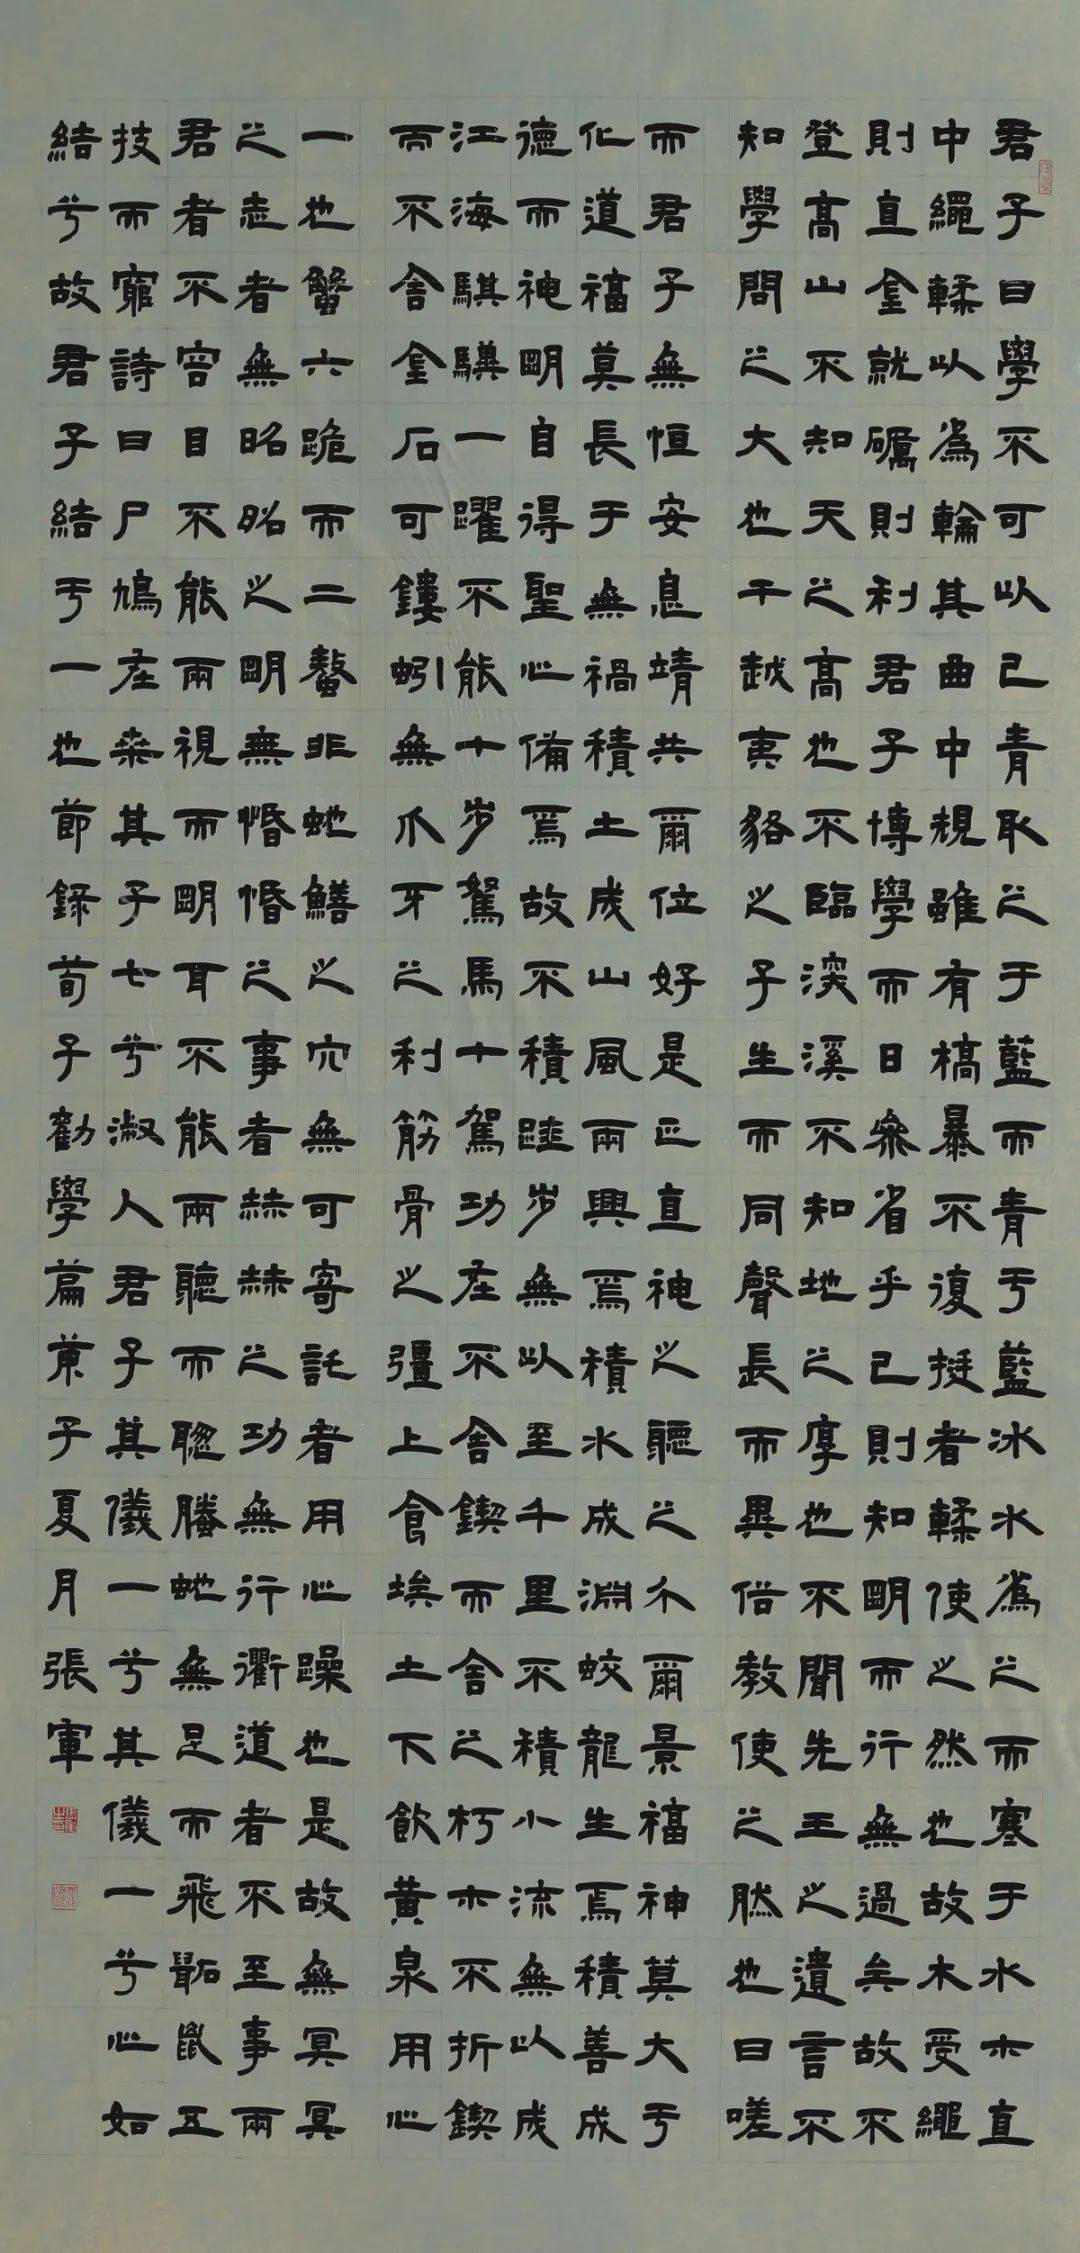 君子曰學不可以已青取之于藍而青于藍冰水為之而寒于水木直
中繩輮以為輪其曲中規雖有槁暴不復挺者輮使之然也故木受繩
則直金就礪則利君子博學而日參省乎己則知明而行無過矣故不
登高山不知天之高也不臨深溪不知地之厚也不聞先王之遺言不
知學問之大也干越夷貉之子生而同聲長而異俗教使之然也曰嗟
而君子無恒安息靖共爾位好是正直神之聽之介爾景福神莫大于
化道福莫長于無禍積土成山風雨興焉積水成淵蛟龍生焉積善成
德而神明自得聖心備焉故不積跬步無以至千里不積小流無以成
江海騏驥一躍不能十步駑馬十駕功在不舍鍥而舍之朽木不折鍥
而不舍金石可鏤蚓無爪牙之利筋骨之彊上食埃土下飲黃泉用心
一也蟹六跪而二螯非蛇鱔之穴無可寄託者用心躁也是故無冥冥
之志者無昭昭之明無惛惛之事者赫赫之功無行衢道者不至事兩
君者不容目不能兩視而明耳不能兩聽而聰螣蛇無足而飛鼫鼠五
技而窮詩曰尸鳩在桑其子七兮淑人君子其儀一兮其儀一兮心如
結兮故君子結于一也節錄荀子勸學篇庚子夏月張軍